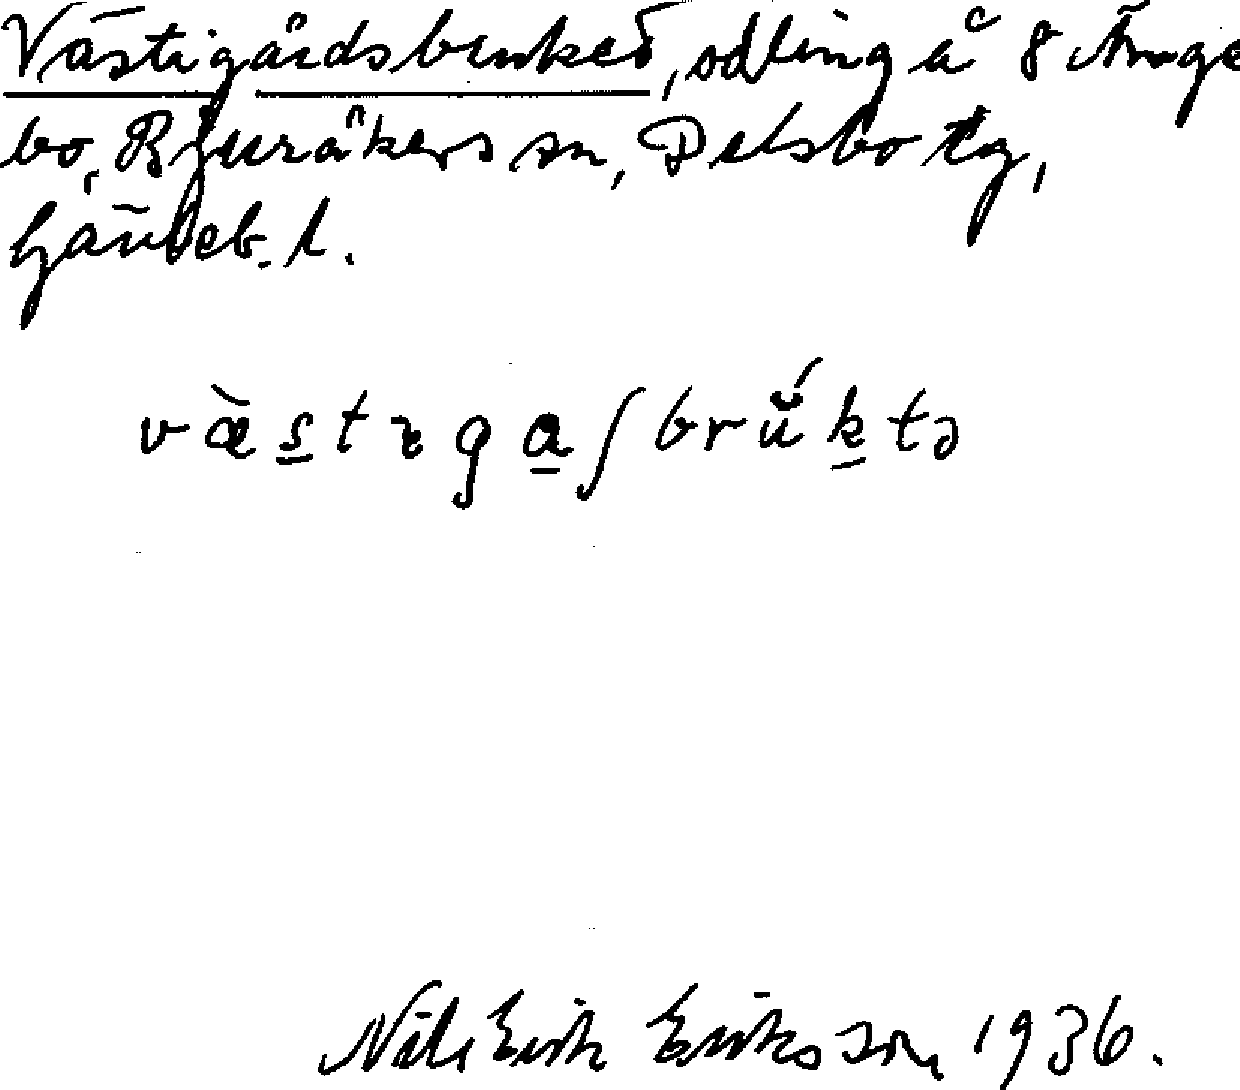 Västigårdsbruket, odling å 8 Änge
bo, Bjuråkers sn, Delsbo tg,
Gävleb. l.
væ̀s̲tɩga̲ʃbrŭ́k̲tə
Nils Erik Eriksson 1936.